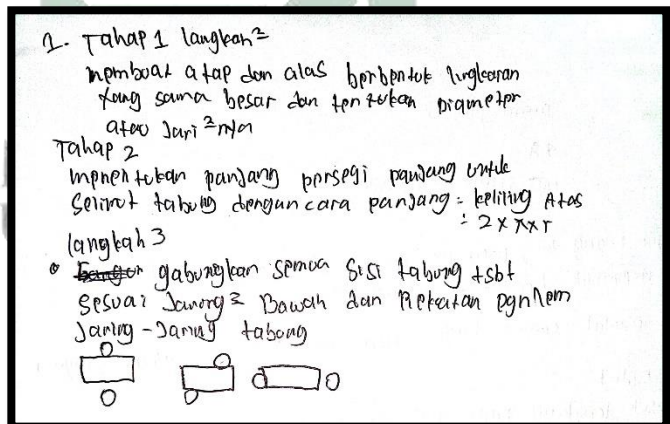 1. Tahap 1 langkah²
membuat atap dan alas berbentuk lingkaran
yang sama besar dan tentukan Diameter
atau Jari²nya
Tahap 2
menentukan panjang persegi panjang untuk
Selimut tabung dengan cara panjang = keliling Atas
= 2 x π x r
langkah 3
gabungkan semua sisi tabung tsbt
Sesuai Jaring² Bawah dan Rekatan dgn lem
Jaring-Jaring tabung